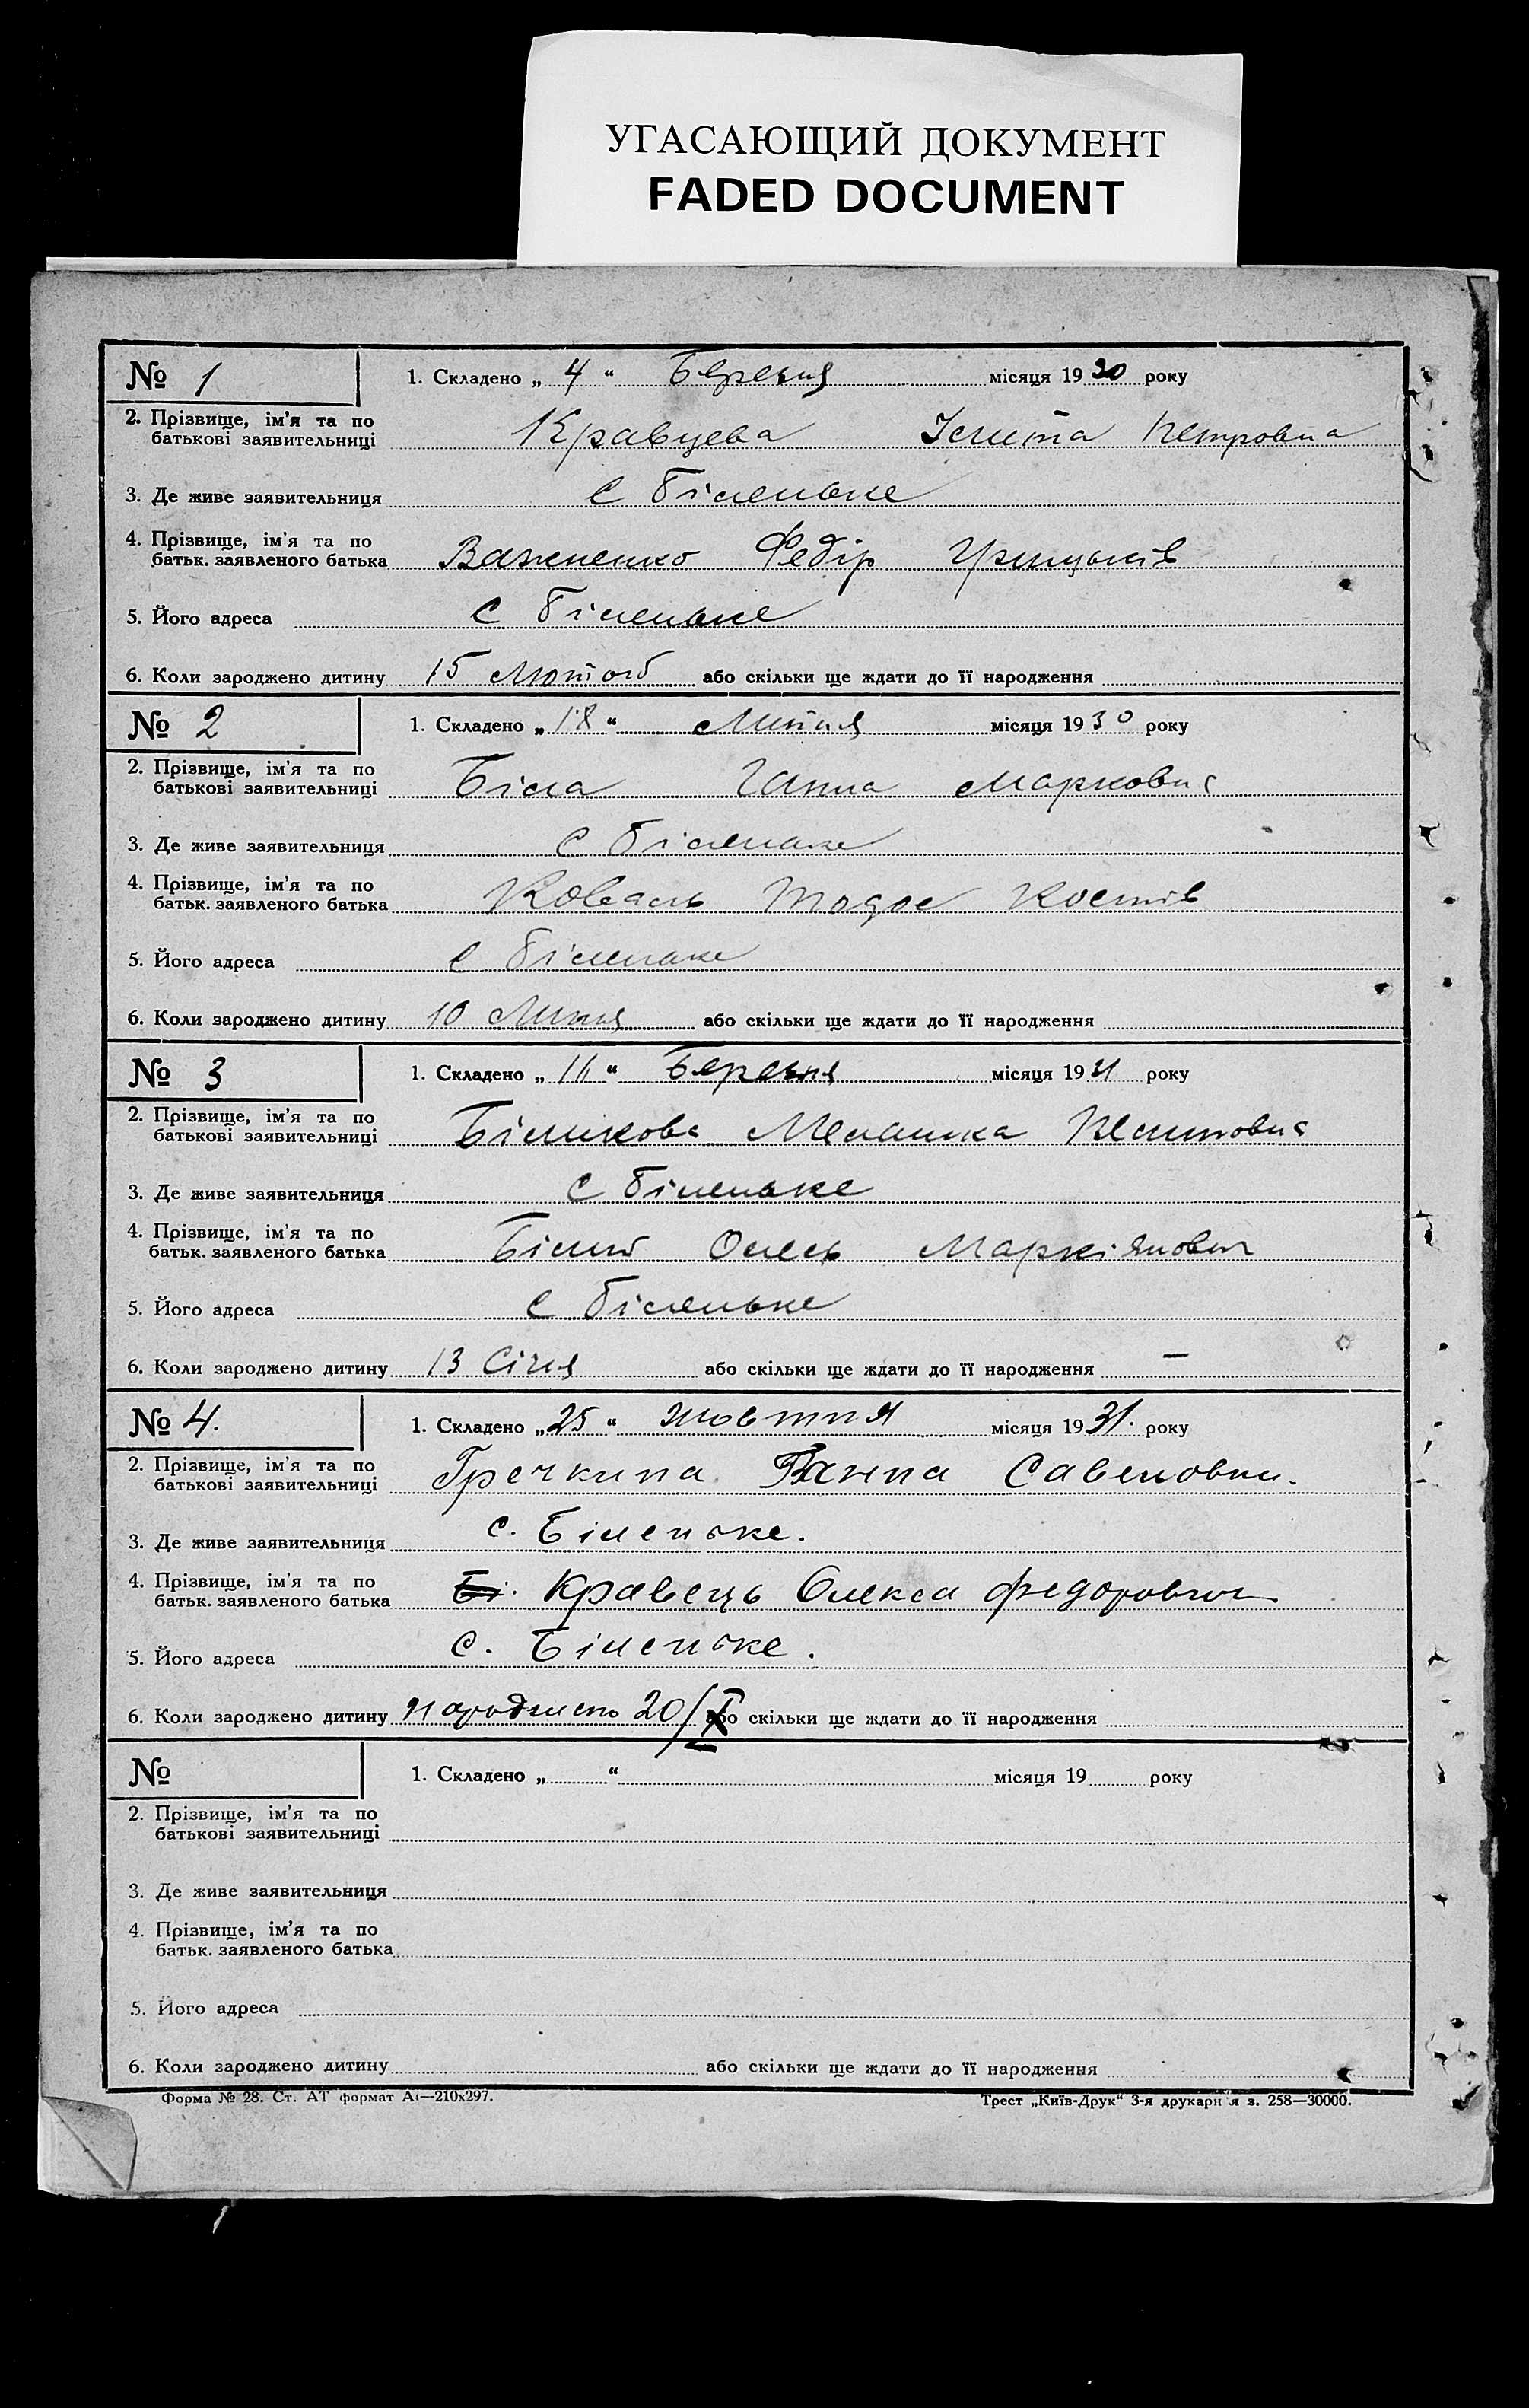 УГАСАЮЩИЙ ДОКУМЕНТ
FADED DOCUMENT
№ 1
1. Складено „ 4 “ Березня місяця 1930 року
2. Прізвище, ім'я та по батькові заявительниці Кравцева Петровна
3. Де живе заявительниця с Біленьке
4. Прізвище, ім'я та по батьк. заявленого батька Важненко Федір Грицьків
5. Його адреса с Біленьке
6. Коли зароджено дитину 15 Лютого або скільки ще ждати до її народження
№ 2
1. Складено „ 18 “ Липня місяця 1930 року
2. Прізвище, ім'я та по батькові заявительниці Біла Ганна Марковна
3. Де живе заявительниця с Біленьке
4. Прізвище, ім'я та по батьк. заявленого батька Коваль Тодос Костів
5. Його адреса с Біленьке
6. Коли зароджено дитину 10 Липня або скільки ще ждати до її народження
№ 3
1. Складено „ 11 “ Березня місяця 1931 року
2. Прізвище, ім'я та по батькові заявительниці Біликова Мелашка
3. Де живе заявительниця с Біленьке
4. Прізвище, ім'я та по батьк. заявленого батька Білий Олесь Маркіянович
5. Його адреса с Біленьке
6. Коли зароджено дитину 13 Січня або скільки ще ждати до її народження —
№ 4.
1. Складено „ 25 “ жовтня місяця 1931. року
2. Прізвище, ім'я та по батькові заявительниці Гречкина Ганна Савеловни.
3. Де живе заявительниця с. Біленьке.
4. Прізвище, ім'я та по батьк. заявленого батька Бі. Кравець Олекса Федорович
5. Його адреса с. Біленьке.
6. Коли зароджено дитину 20/X або скільки ще ждати до її народження
№
1. Складено „ “ місяця 19 року
2. Прізвище, ім'я та по батькові заявительниці
3. Де живе заявительниця
4. Прізвище, ім'я та по батьк. заявленого батька
5. Його адреса
6. Коли зароджено дитину або скільки ще ждати до її народження
Форма № 28. Ст. АТ формат А4—210х297.
Трест „Київ-Друк“ 3-я друкарня з. 258—30000.